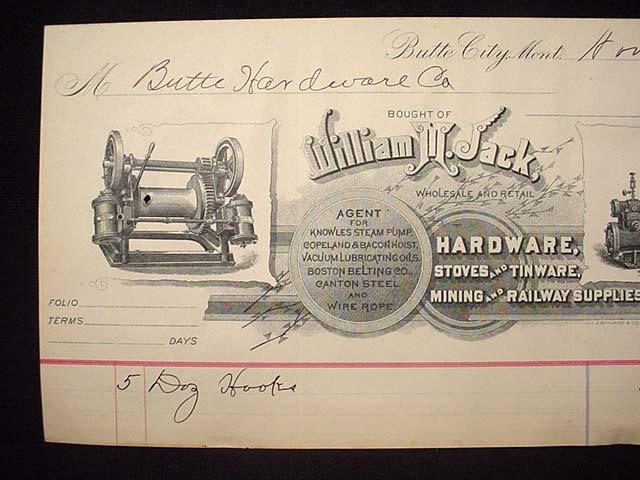 Butte City, Mont. Nov
M Butte Hardware Co
BOUGHT OF
William M. Jack,
WHOLESALE AND RETAIL
AGENT
FOR
KNOWLES STEAM PUMP,
COPELAND & BACON HOIST,
VACUUM LUBRICATING OILS,
BOSTON BELTING CO.,
CANTON STEEL
AND
WIRE ROPE
HARDWARE,
STOVES AND TINWARE,
MINING AND RAILWAY SUPPLIES
FOLIO
TERMS
DAYS
5 Doz Hooks